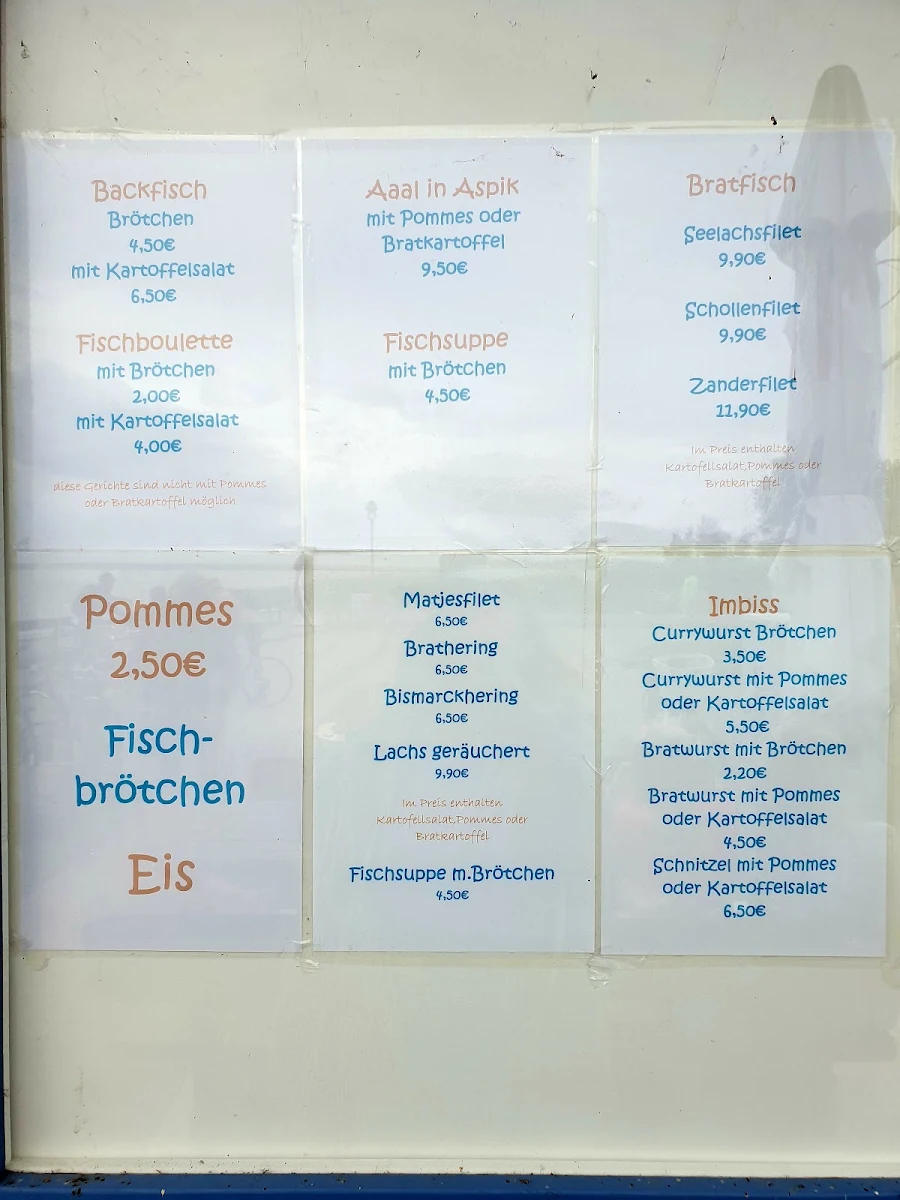 Backfisch
Brötchen
4,50€
mit Kartoffelsalat
6,50€
Fischboulette
mit Brötchen
2,00€
mit Kartoffelsalat
4,00€
diese Gerichte sind nicht mit Pommes
oder Bratkartoffel möglich
Aaal in Aspik
mit Pommes oder
Bratkartoffel
9,50€
Fischsuppe
mit Brötchen
4,50€
Bratfisch
Seelachsfilet
9,90€
Schollenfilet
9,90€
Zanderfilet
11,90€
Im Preis enthalten
Kartofellsalat,Pommes oder
Bratkartoffel
Pommes
2,50€
Fisch-
brötchen
Eis
Matjesfilet
6,50€
Brathering
6,50€
Bismarckhering
6,50€
Lachs geräuchert
9,90€
Im Preis enthalten
Kartofellsalat,Pommes oder
Bratkartoffel
Fischsuppe m.Brötchen
4,50€
Imbiss
Currywurst Brötchen
3,50€
Currywurst mit Pommes
oder Kartoffelsalat
5,50€
Bratwurst mit Brötchen
2,20€
Bratwurst mit Pommes
oder Kartoffelsalat
4,50€
Schnitzel mit Pommes
oder Kartoffelsalat
6,50€